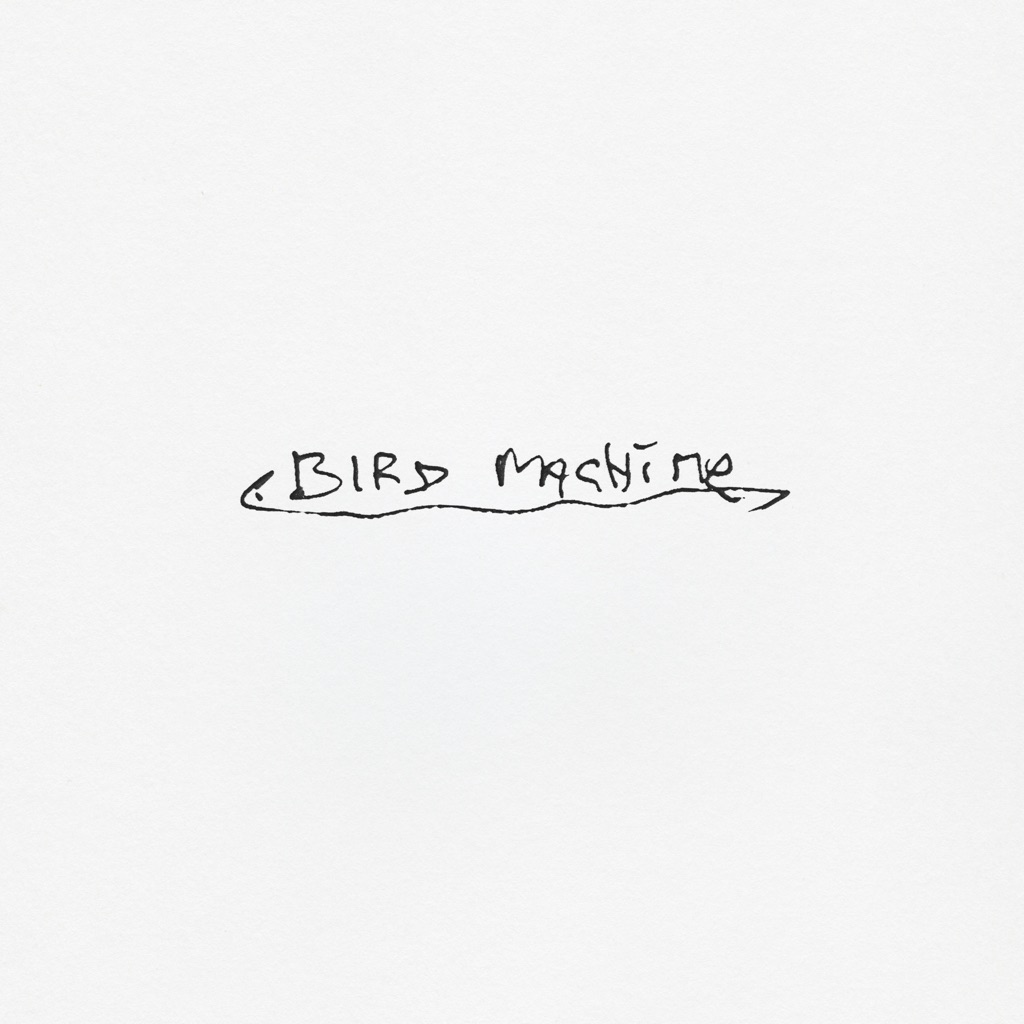 BIRD MACHiNe